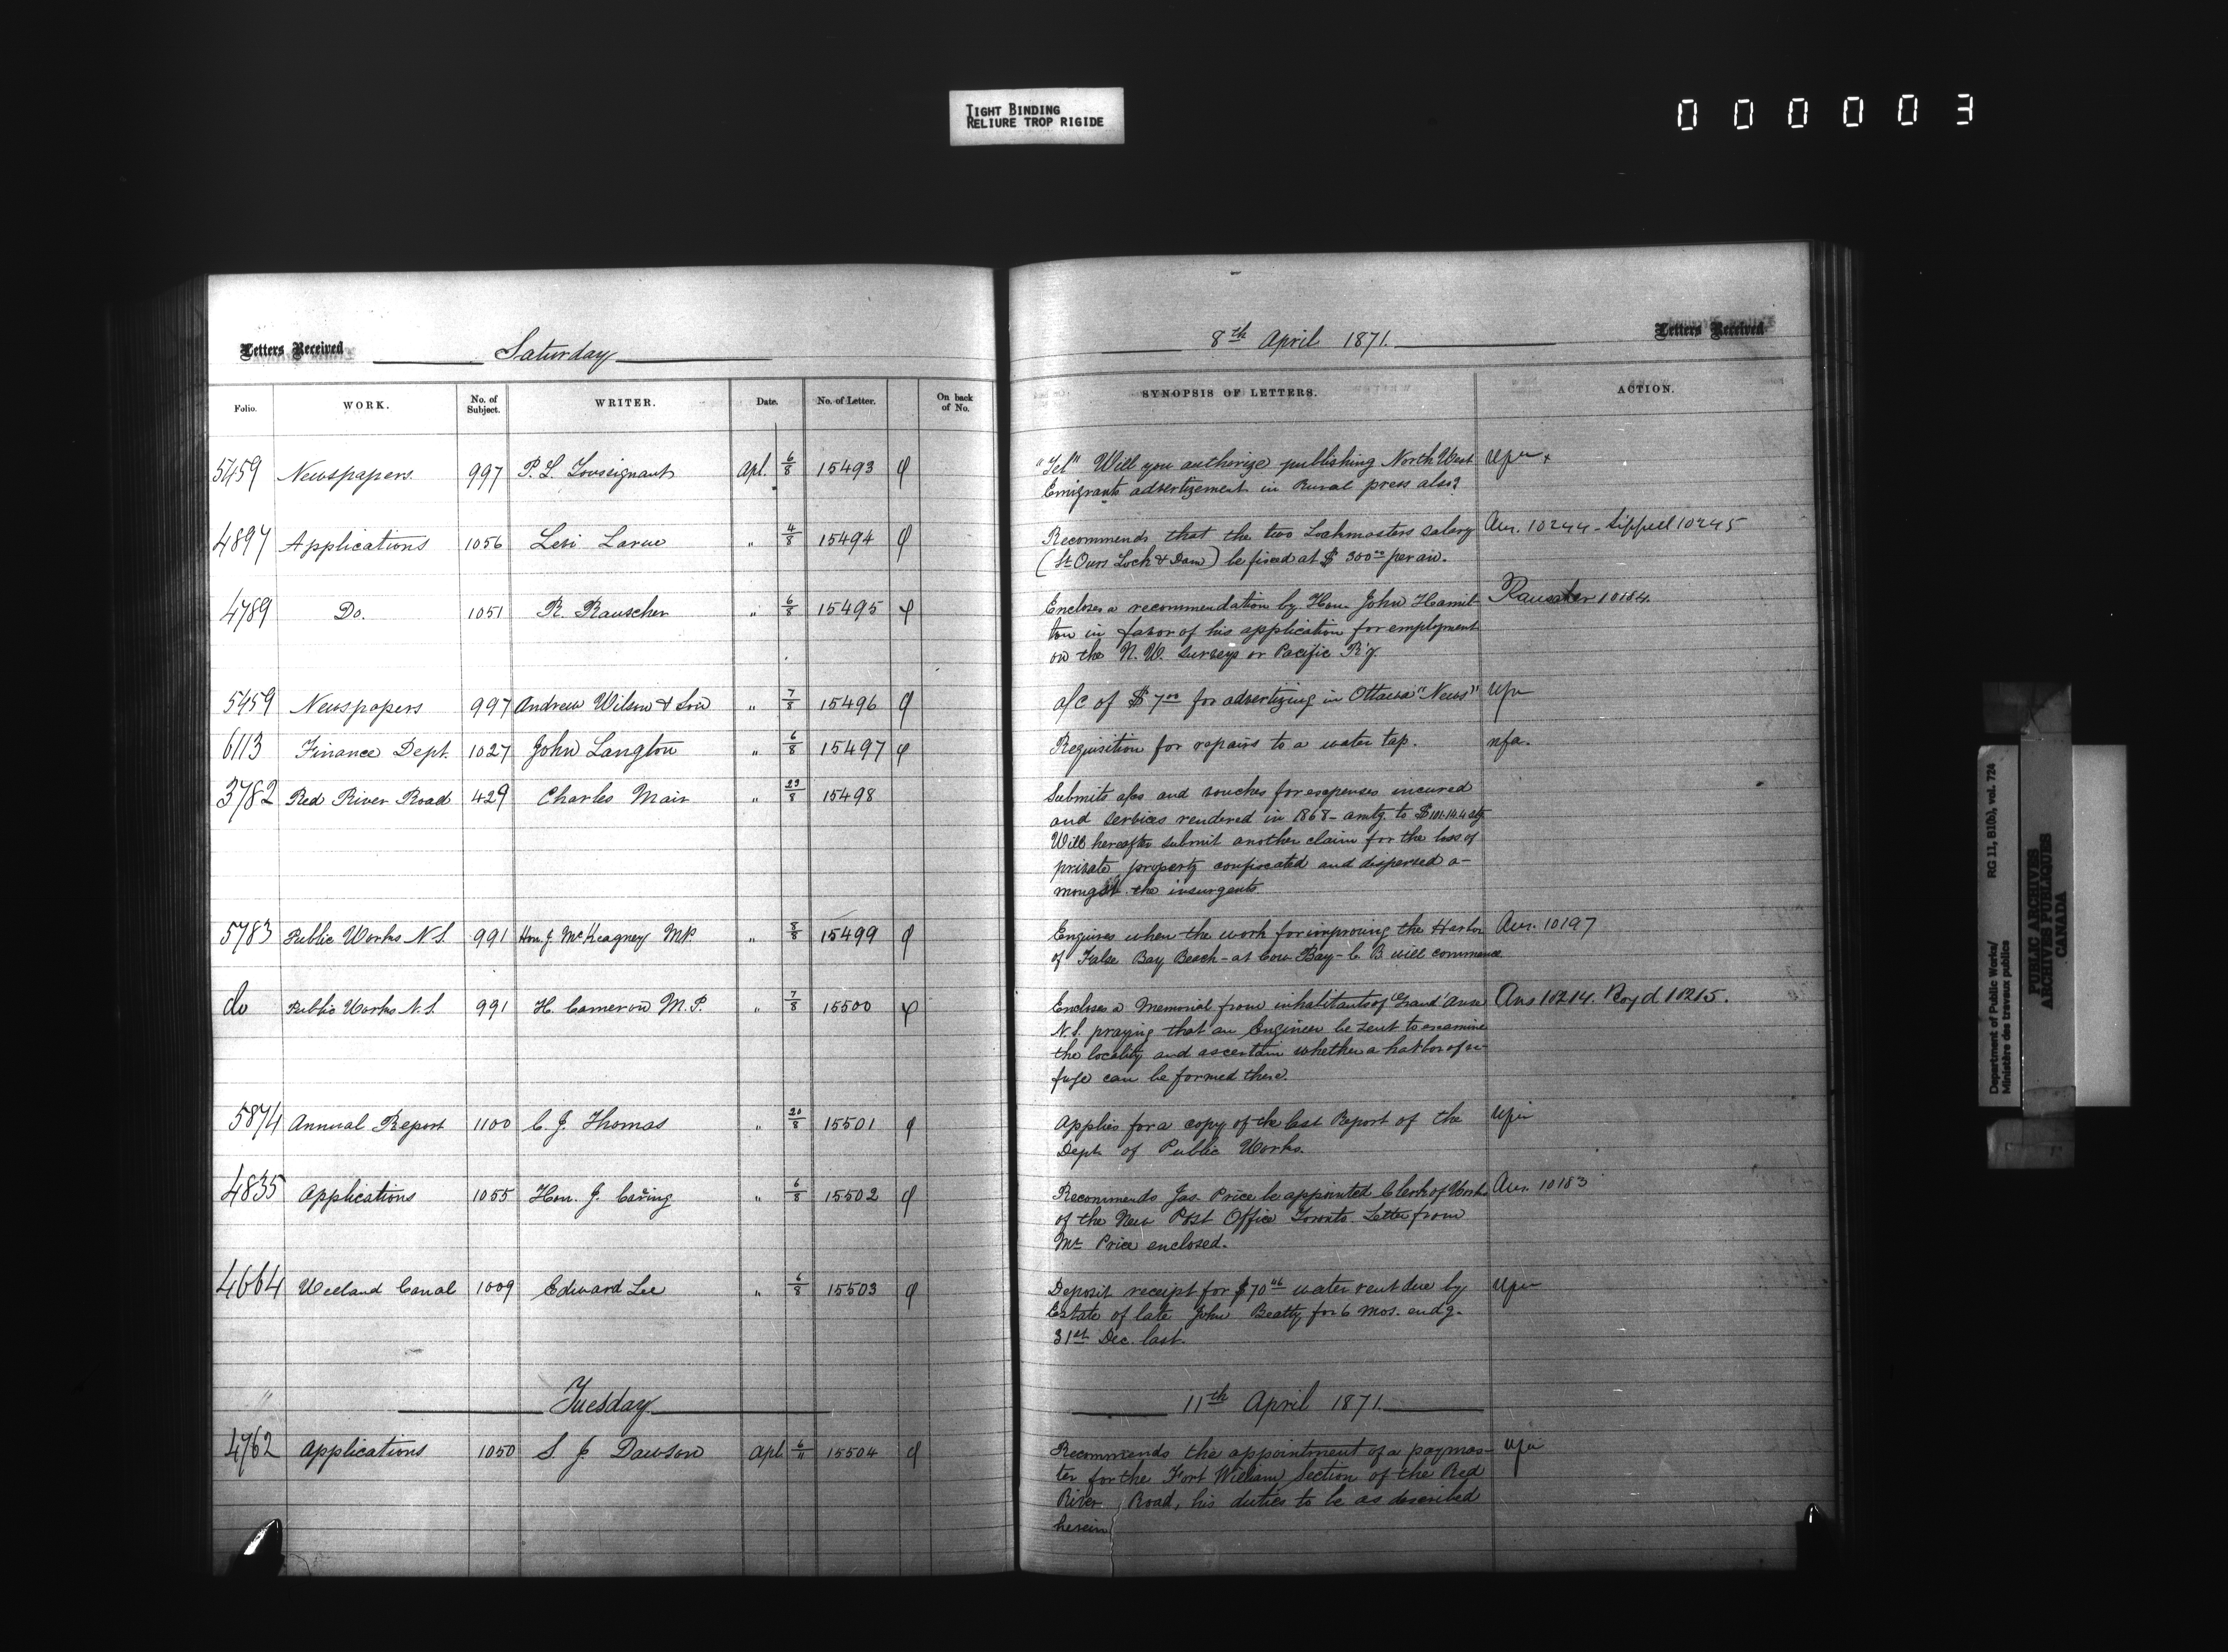 TIGHT BINDING
RELIURE TROP RIGIDE
000003
Letters Received Saturday 8th April 1871. Letters Received
Folio. WORK. No. of Subject. WRITER. Date. No. of Letter. On back of No. SYNOPSIS OF LETTERS. ACTION.
5459 Newspapers 997 P. L. Apl. 6/8 15493 "Tel" Will you authorize publishing North West
Emigrants advertizement in Rural press also?
4897 Applications 1056 Levi Larue " 4/8 15494 Recommends that the two Lockmasters salary Aur. 10244 - Sippell 10245
(St Ours Lock & Dam) be fixed at $300.00 per an.
4789 Do. 1051 R. Rauscher " 6/8 15495 Encloses a recommendation by Hon. John Hamil- Rauscher 10184.
ton in favor of his application for employment
on the N. W. surveys or Pacific R'y.
5459 Newspapers 997 Andrew Wilson & Son " 7/8 15496 a/c of $7.00 for advertizing in Ottawa "News"
6113 Finance Dept. 1027 John Langton " 6/8 15497 Requisition for repairs to a water tap. nfa.
3782 Red River Road 429 Charles Mair " 23/8 15498 Submits a/cs and vouches for expenses incured
and services rendered in 1868 - amtg. to
Will hereafter submit another claim for the loss of
private property confiscated and dispersed a-
mongst the insurgents
5783 Public Works N.S. 991 Hon. J. McKeagney M.P. " 8/8 15499 Enquires when the work for improving the Harbor Aur. 10197
of False Bay Beach - at Cow Bay - C. B. will commence.
do Public Works N.S. 991 H. Cameron M.P. " 7/8 15500 Encloses a Memorial from inhabitants of Grand Anse Ans 10214. Boyd 10215.
N.S. praying that an Engineer be sent to examine
the locality and ascertain whether a harbor of re-
fuge can be formed there.
5874 Annual Report 1100 C. J. Thomas " 20/8 15501 Applies for a copy of the last Report of the
Dept. of Public Works.
4835 Applications 1055 Hon. J. Carling " 6/8 15502 Recommends Jas. Price be appointed Clerk of Works Aur. 10183
of the New Post Office Toronto. Letter from
Mr Price enclosed.
4664 Welland Canal 1009 Edward Lee " 6/8 15503 Deposit receipt for $70.46 water rent due by
Estate of late John Beatty for 6 mos. endg.
31st Dec. last.
Tuesday 11th April 1871.
4762 Applications 1050 S. J. Dawson Apl. 6/11 15504 Recommends the appointment of a paymas-
ter for the Fort William Section of the Red
River Road, his duties to be as described
herein
Department of Public Works/ RG 11, B1(b), vol. 724
Ministère des travaux publics
PUBLIC ARCHIVES
ARCHIVES PUBLIQUES
CANADA